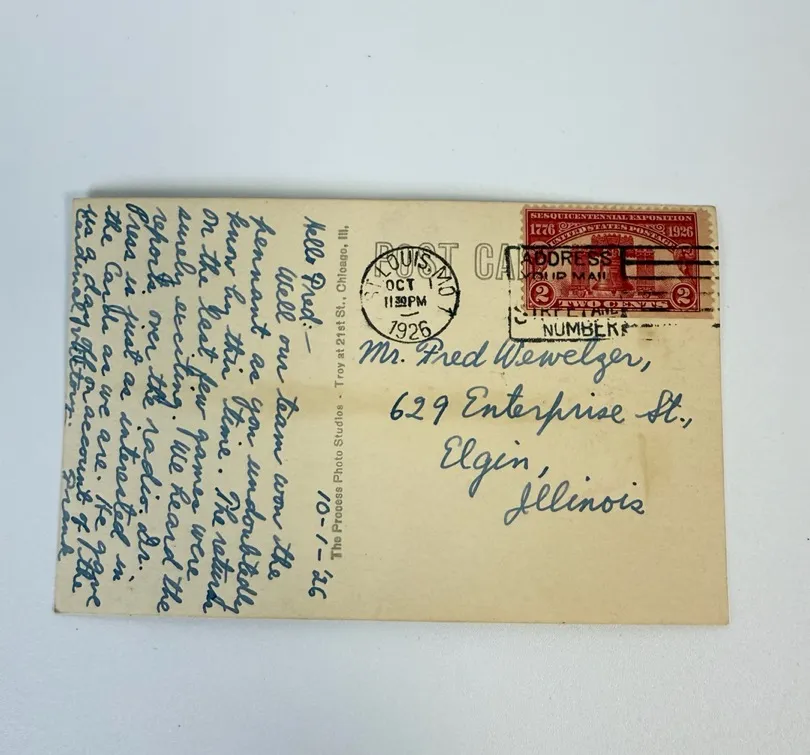 10-1-'26
Hello Fred:—
Well our team won the
pennant as you undoubtedly
know by this time. The return
on the last few games were
surely exciting. We heard the
reports over the radio. Dr.
Press is just as interested in
the Cards as we are. He gave
us a day off on account of the
Cardinal victory.
Frank
The Process Photo Studios - Troy at 21st St., Chicago, Ill.
POST CA
ST. LOUIS, MO.
OCT 1
1130 PM
1926
ADDRESS
YOUR MAIL
STREET AND
NUMBER
SESQUICENTENNIAL EXPOSITION
1776 1926
UNITED STATES POSTAGE
2 TWO CENTS 2
Mr. Fred Wewetzer,
629 Enterprise St.,
Elgin,
Illinois